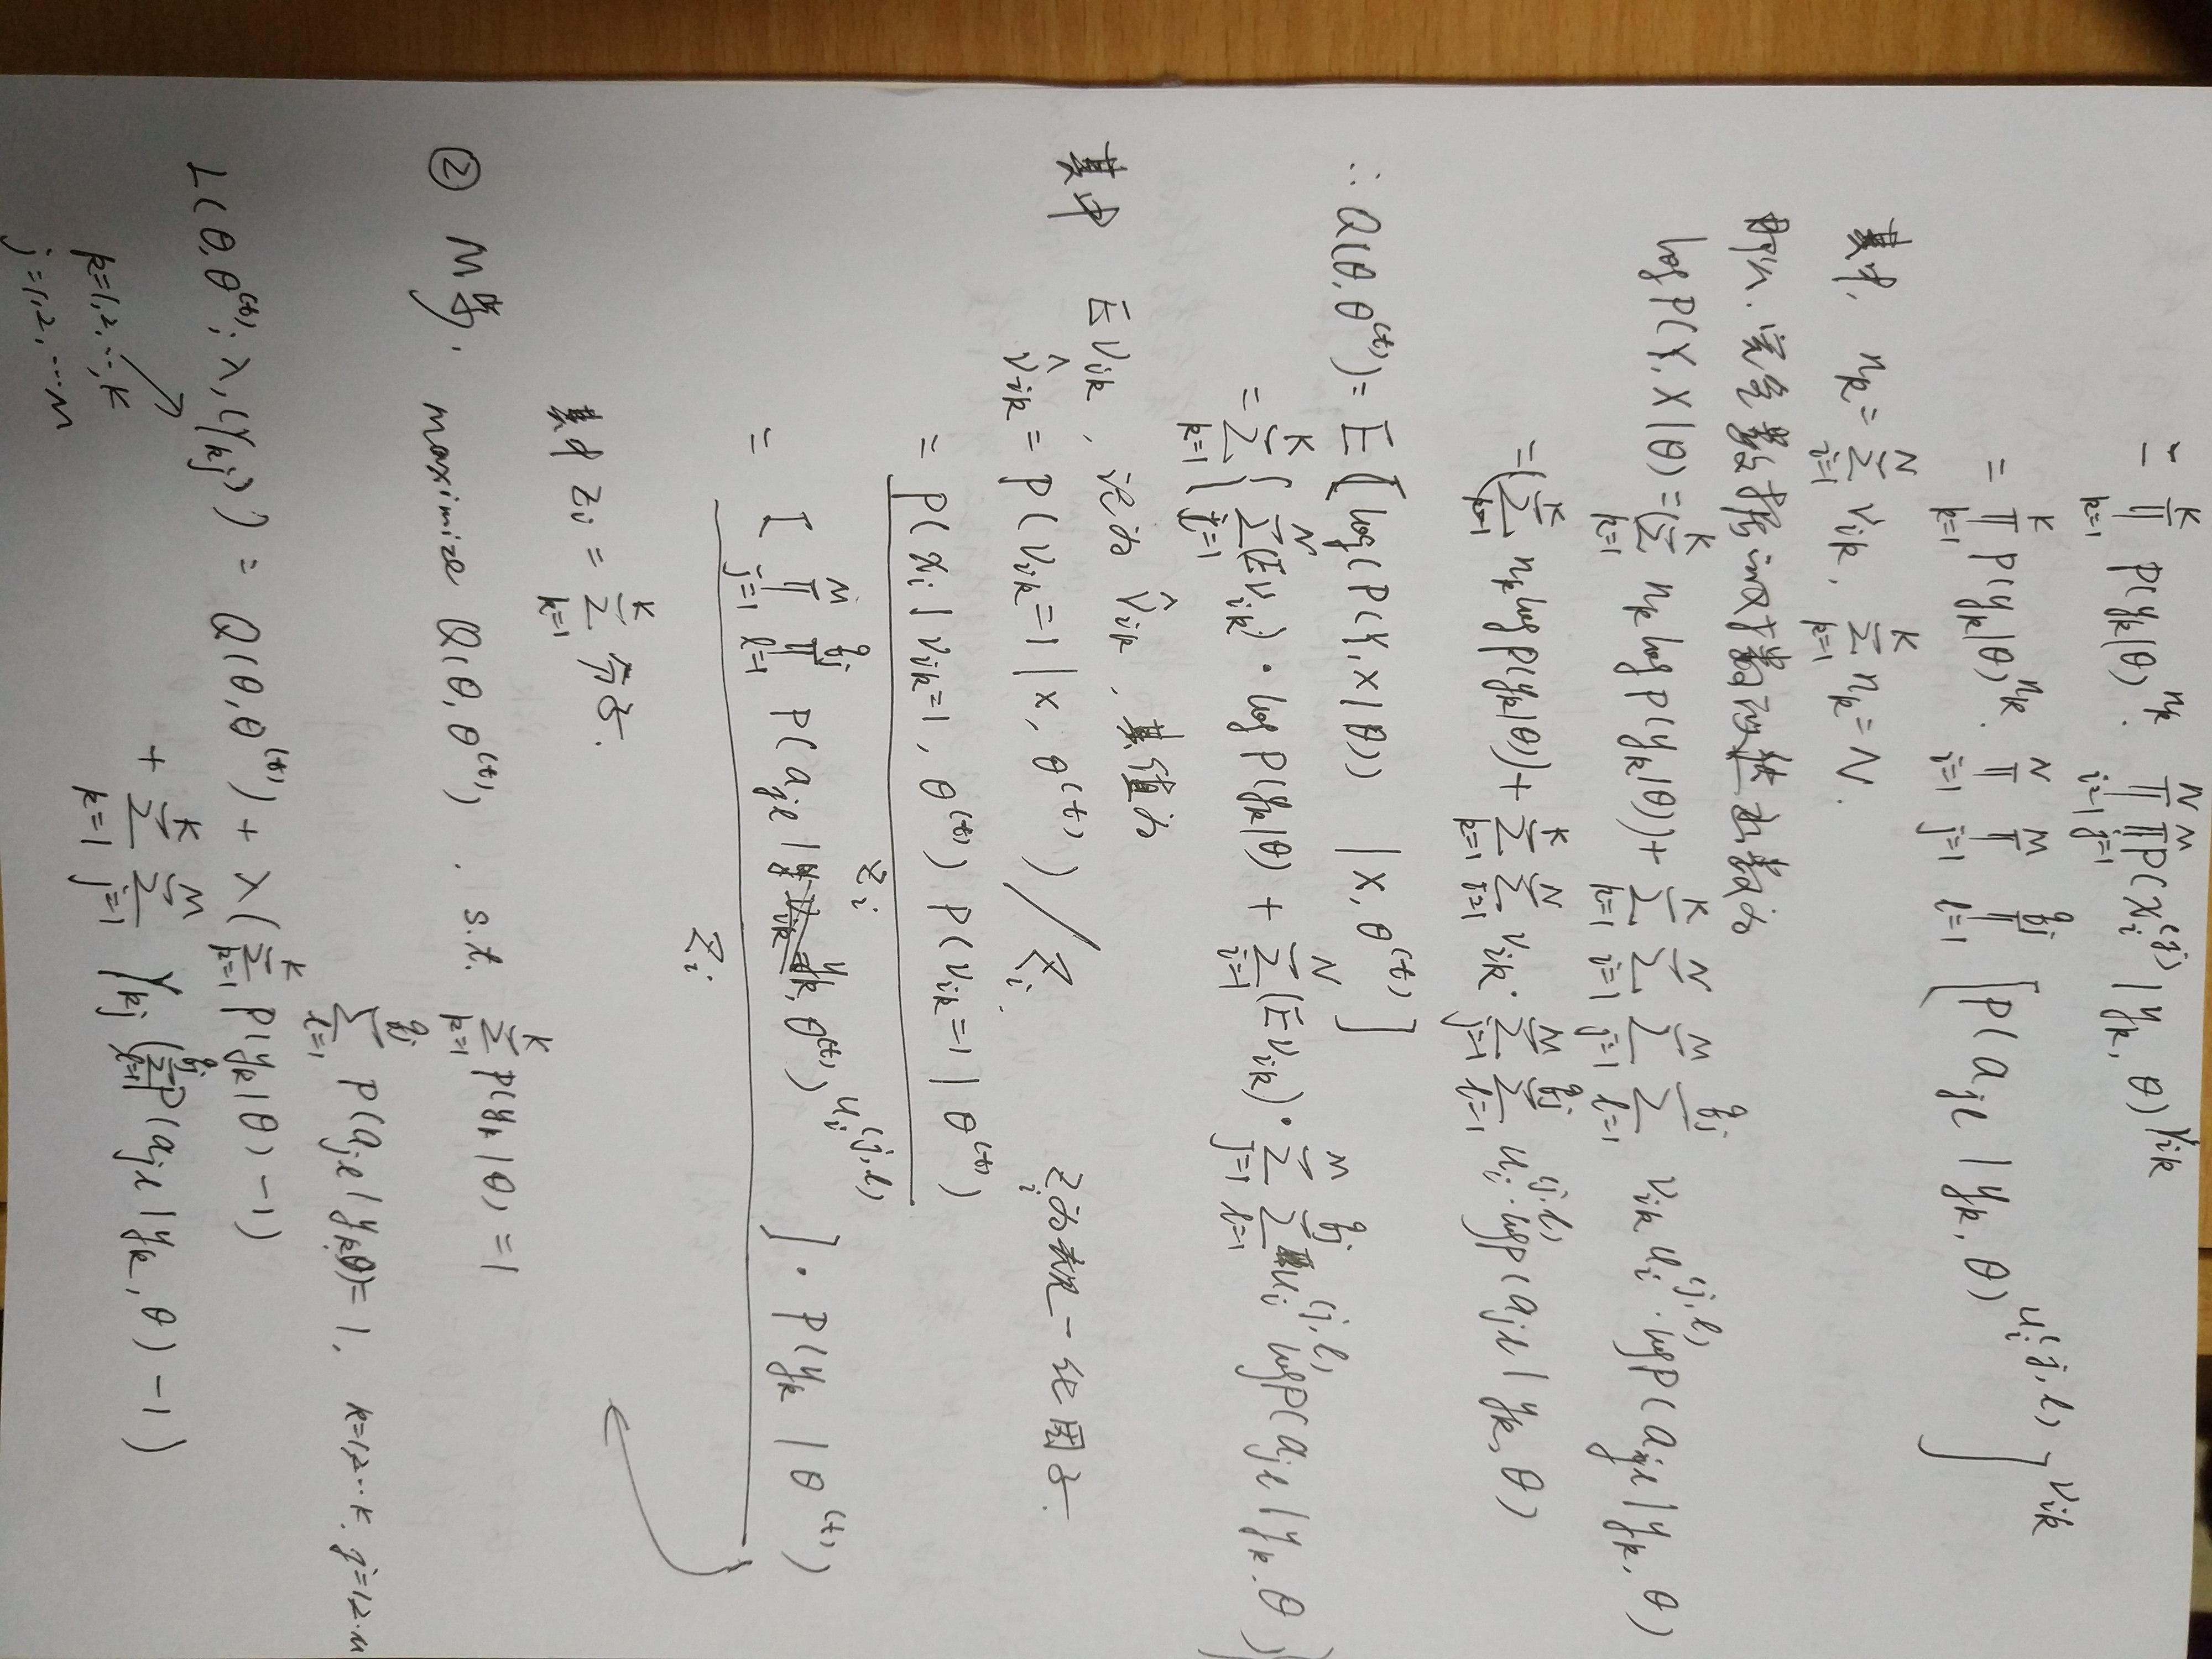 = ∏_{k=1}^{K} P(y_k|θ)^{n_k} · ∏_{i=1}^{N} ∏_{j=1}^{M} P(x_i^{(j)} | y_k, θ)^{γ_{ik}}
= ∏_{k=1}^{K} P(y_k|θ)^{n_k} · ∏_{i=1}^{N} ∏_{j=1}^{M} ∏_{l=1}^{q_j} [P(a_{jl} | y_k, θ)^{u_i^{(j,l)}}]^{γ_{ik}}
其中, n_k = ∑_{i=1}^{N} γ_{ik}, ∑_{k=1}^{K} n_k = N.
那么, 完全数据的对数似然函数为
log P(Y, X|θ) = (∑_{k=1}^{K} n_k log P(y_k|θ)) + ∑_{k=1}^{K} ∑_{i=1}^{N} ∑_{j=1}^{M} ∑_{l=1}^{q_j} γ_{ik} u_i^{(j,l)} · log P(a_{jl} | y_k, θ)
= (∑_{k=1}^{K} n_k log P(y_k|θ)) + ∑_{k=1}^{K} ∑_{i=1}^{N} γ_{ik} · ∑_{j=1}^{M} ∑_{l=1}^{q_j} u_i^{(j,l)} · log P(a_{jl} | y_k, θ)
∴ Q(θ, θ^{(t)}) = E [log(P(Y, X|θ)) | X, θ^{(t)}]
= ∑_{k=1}^{K} { ∑_{i=1}^{N} (Eγ_{ik}) · log P(y_k|θ) + ∑_{i=1}^{N} (Eγ_{ik}) · ∑_{j=1}^{M} ∑_{l=1}^{q_j} u_i^{(j,l)} log P(a_{jl} | y_k, θ)}
其中 Eγ_{ik}, 记为 γ̂_{ik}, 其值为
γ̂_{ik} = P(γ_{ik}=1 | X, θ^{(t)}) / Z_i. Z_i为规一化因子.
= P(x_i | γ_{ik}=1, θ^{(t)}) P(γ_{ik}=1 | θ^{(t)}) / Z_i
= [∏_{j=1}^{M} ∏_{l=1}^{q_j} P(a_{jl} | y_k, θ^{(t)})^{u_i^{(j,l)}}] · P(y_k | θ^{(t)}) / Z_i
其中 Z_i = ∑_{k=1}^{K} 分子.
② M步, maximize Q(θ, θ^{(t)}). s.t. ∑_{k=1}^{K} P(y_k|θ) = 1
∑_{l=1}^{q_j} P(a_{jl} | y_k, θ) = 1, k=1,2…K, j=1,2…M
L(θ, θ^{(t)}; λ, (γ_{kj})) = Q(θ, θ^{(t)}) + λ(∑_{k=1}^{K} P(y_k|θ) − 1)
+ ∑_{k=1}^{K} ∑_{j=1}^{M} γ_{kj} (∑_{l=1}^{q_j} P(a_{jl} | y_k, θ) − 1)
k=1,2,…,K
j=1,2,…M